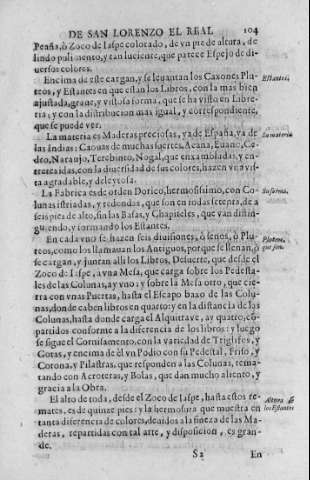 DE SAN LORENZO EL REAL 104
Peaña, ò Zoco de Iaspe colorado, de vn pie de altura, de
lindo pulimento, y tan luciente, que parece Espejo de di-
uersos colores.
Encima de este cargan, y se leuantan los Caxones Plu- Estantes,
teos, y Estantes en que estàn los Libros, con la mas bien
ajustada, graue, y vistosa forma, que se ha visto en Libre-
ria; y con la distribucion mas igual, y correspondiente,
que se puede ver.
La materia es Maderas preciosas, ya de España, ya de Su materia
las Indias: Caouas de muchas suertes, Acana, Euano, Ce-
dro, Naranjo, Terebinto, Nogal, que enxambladas, y en-
tretexidas, con la diuersidad de sus colores, hazen vn vis-
ta agradable, y deleytosa.
La Fabrica es de orden Dorico, hermosissimo, con Co- Su forma,
lunas istriadas, y redondas, que son en todas setenta, de a
seis pies de alto, sin las Basas, y Chapiteles, que van distin-
guiendo, y formando los Estantes.
En cada vno se hazen seis diuisiones, ò senos, ò Plu- Pluteos,
teos, como los llamauan los Antiguos, porque se llenan, ò que son.
se cargan, y juntan alli los Libros, Desuerte, que desde el
Zoco de Iaspe, a vna Mesa, que carga sobre los Pedesta-
les de las Colunas, ay vno; y sobre la Mesa otro, que cie-
rra con vnas Puertas, hasta el Escapo baxo de las Colu-
nas, donde caben libros en quarto: y en la distancia de los
Colunas, hasta donde carga el Alquitrave, ay quatro, cõ-
partidos conforme a la diferencia de los libros: y luego
se sigue el Cornisamento, con la variedad de Triglifes, y
Gotas, y encima de èl vn Podio con su Pedestal, Friso, y
Corona, y Pilastras, que responden a las Colunas, rema-
tando con Acroteras, y Bolas, que dan mucho aliento, y
gracia a la Obra.
El alto de toda, desde el Zoco de Iaspe, hasta estos re- Altura de
mates, es de quinze pies: y la hermosura que muestra en los Estantes
tanta diferencia de colores, deuidos a la fineza de las Ma-
deras, repartidas con tal arte, y disposicion, es gran-
de.
S2 En